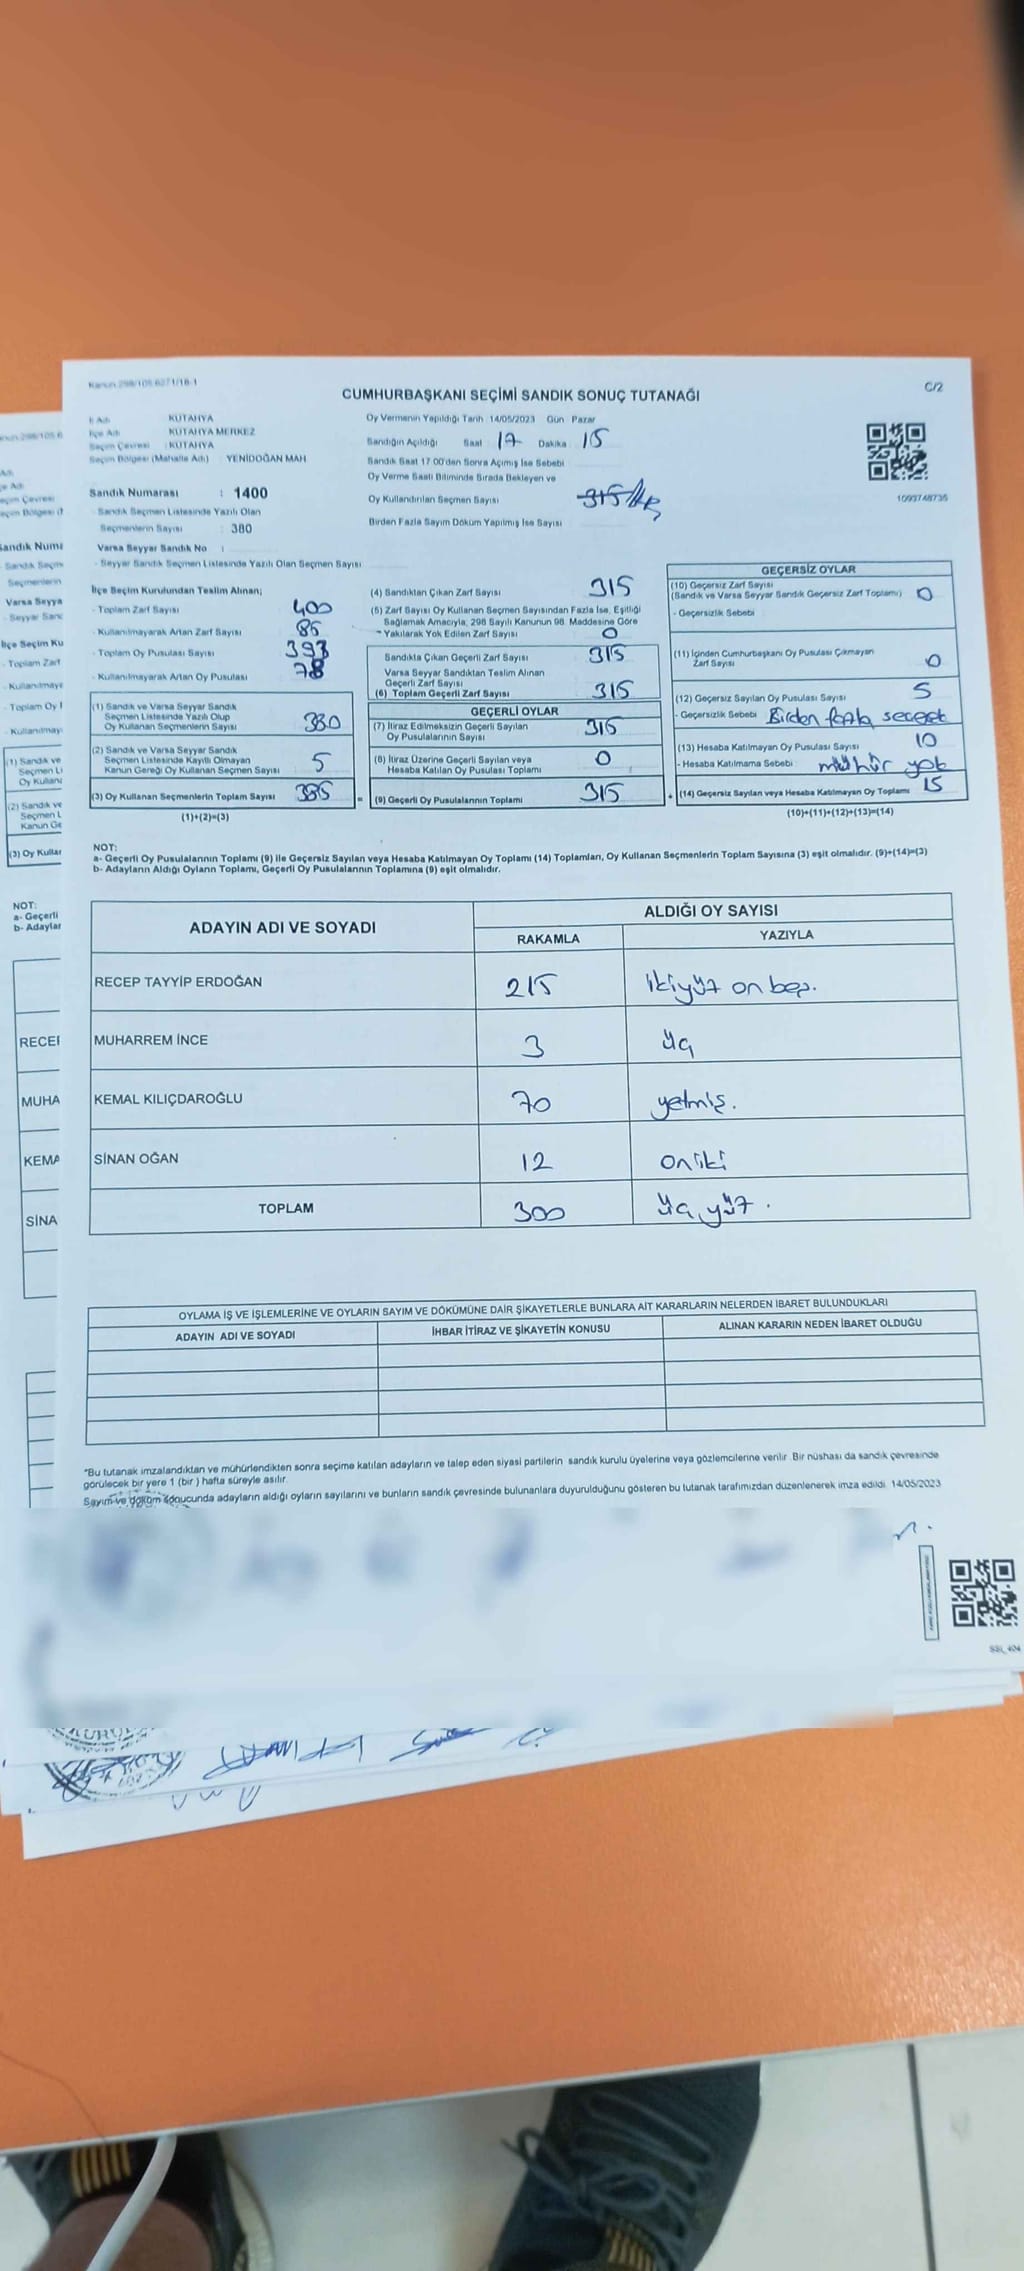 Kanun 298/105 6271/18-1
C/2
CUMHURBAŞKANI SEÇİMİ SANDIK SONUÇ TUTANAĞI
İl Adı KÜTAHYA
İlçe Adı KÜTAHYA MERKEZ
Seçim Çevresi : KÜTAHYA
Seçim Bölgesi (Mahalle Adı) : YENİDOĞAN MAH
Sandık Numarası : 1400
- Sandık Seçmen Listesinde Yazılı Olan
Seçmenlerin Sayısı : 380
Varsa Seyyar Sandık No :
- Seyyar Sandık Seçmen Listesinde Yazılı Olan Seçmen Sayısı
Oy Vermenin Yapıldığı Tarih 14/05/2023 Gün Pazar
Sandığın Açıldığı Saat 17 Dakika : 15
Sandık Saat 17 00'den Sonra Açımış İse Sebebi
Oy Verme Saati Bitiminde Sırada Bekleyen ve
Oy Kullandırılan Seçmen Sayısı 315
Birden Fazla Sayım Döküm Yapılmış İse Sayısı
1093748735
İlçe Seçim Kurulundan Teslim Alınan;
- Toplam Zarf Sayısı 400
- Kullanılmayarak Artan Zarf Sayısı 85
- Toplam Oy Pusulası Sayısı 393
- Kullanılmayarak Artan Oy Pusulası 78
(1) Sandık ve Varsa Seyyar Sandık
Seçmen Listesinde Yazılı Olup
Oy Kullanan Seçmenlerin Sayısı 380
(2) Sandık ve Varsa Seyyar Sandık
Seçmen Listesinde Kayıtlı Olmayan
Kanun Gereği Oy Kullanan Seçmen Sayısı 5
(3) Oy Kullanan Seçmenlerin Toplam Sayısı 385
(1)+(2)=(3)
=
(4) Sandıktan Çıkan Zarf Sayısı 315
(5) Zarf Sayısı Oy Kullanan Seçmen Sayısından Fazla İse, Eşitliği
Sağlamak Amacıyla, 298 Sayılı Kanunun 98. Maddesine Göre
Yakılarak Yok Edilen Zarf Sayısı 0
Sandıkta Çıkan Geçerli Zarf Sayısı 315
Varsa Seyyar Sandıktan Teslim Alınan
Geçerli Zarf Sayısı
(6) Toplam Geçerli Zarf Sayısı 315
GEÇERLİ OYLAR
(7) İtiraz Edilmeksizin Geçerli Sayılan
Oy Pusulalarının Sayısı 315
(8) İtiraz Üzerine Geçerli Sayılan veya
Hesaba Katılan Oy Pusulası Toplamı 0
(9) Geçerli Oy Pusulalarının Toplamı 315
+
GEÇERSİZ OYLAR
(10) Geçersiz Zarf Sayısı
(Sandık ve Varsa Seyyar Sandık Geçersiz Zarf Toplamı) 0
- Geçersizlik Sebebi
(11) İçinden Cumhurbaşkanı Oy Pusulası Çıkmayan
Zarf Sayısı 0
(12) Geçersiz Sayılan Oy Pusulası Sayısı 5
- Geçersizlik Sebebi Birden fazla secenet
(13) Hesaba Katılmayan Oy Pusulası Sayısı 10
- Hesaba Katılmama Sebebi : mühür yok
(14) Geçersiz Sayılan veya Hesaba Katılmayan Oy Toplamı 15
(10)+(11)+(12)+(13)=(14)
NOT:
a- Geçerli Oy Pusulalarının Toplamı (9) ile Geçersiz Sayılan veya Hesaba Katılmayan Oy Toplamı (14) Toplamları, Oy Kullanan Seçmenlerin Toplam Sayısına (3) eşit olmalıdır. (9)+(14)=(3)
b- Adayların Aldığı Oyların Toplamı, Geçerli Oy Pusulalarının Toplamına (9) eşit olmalıdır.
ADAYIN ADI VE SOYADI ALDIĞI OY SAYISI
RAKAMLA YAZIYLA
RECEP TAYYİP ERDOĞAN 215 ikiyüz on beş.
MUHARREM İNCE 3 üç
KEMAL KILIÇDAROĞLU 70 yetmiş.
SİNAN OĞAN 12 oniki
TOPLAM 300 üç yüz.
OYLAMA İŞ VE İŞLEMLERİNE VE OYLARIN SAYIM VE DÖKÜMÜNE DAİR ŞİKAYETLERLE BUNLARA AİT KARARLARIN NELERDEN İBARET BULUNDUKLARI
ADAYIN ADI VE SOYADI İHBAR İTİRAZ VE ŞİKAYETİN KONUSU ALINAN KARARIN NEDEN İBARET OLDUĞU
"Bu tutanak imzalandıktan ve mühürlendikten sonra seçime katılan adayların ve talep eden siyasi partilerin sandık kurulu üyelerine veya gözlemcilerine verilir. Bir nüshası da sandık çevresinde
görülecek bir yere 1 (bir ) hafta süreyle asılır.
Sayım ve döküm sonucunda adayların aldığı oyların sayılarını ve bunların sandık çevresinde bulunanlara duyurulduğunu gösteren bu tutanak tarafımızdan düzenlenerek imza edildi. 14/05/2023
SSI_404